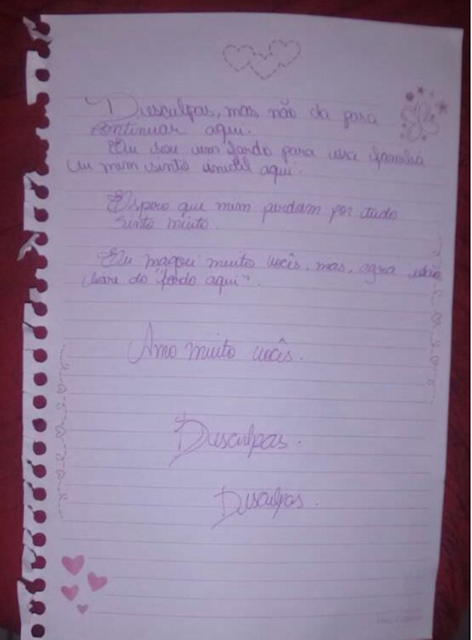 Desculpas, mas não da para
continuar aqui.
Eu sou um fardo para família
eu mim sinto inutil aqui.
Espero que mim perdoam por tudo
sinto muito.
Eu magoei muito vocês, mas, agora
livre do "fardo aqui".
Amo muito vocês.
Desculpas.
Desculpas.